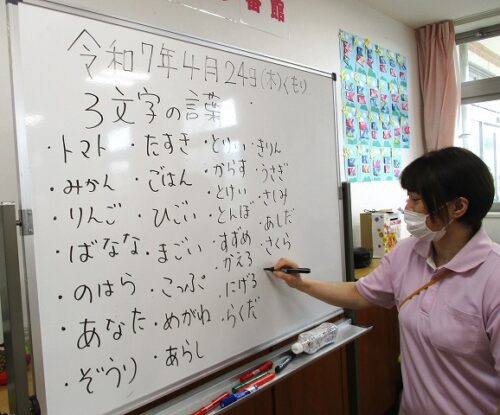 番館
令和7年4月24日(木)くもり
3文字の言葉
・トマト
・みかん
・りんご
・ばなな
・のはら
・あなた
・ぞうり
・たすき
・ごはん
・ひごい
・まごい
・こっぷ
・めがね
・あらし
・とりい
・からす
・とけい
・とんぼ
・すずめ
・かえる
・にげる
・らくだ
・きりん
・うさぎ
・さしみ
・あしだ
・さくら